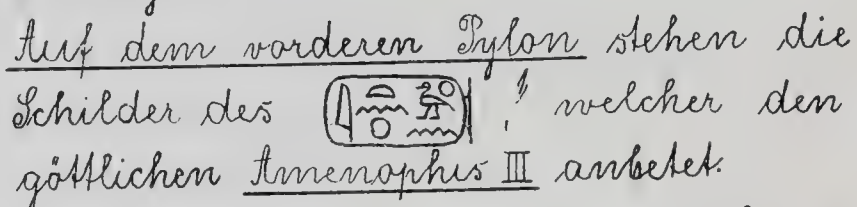 Auf dem vorderen Pylon stehen die
Schilder des 𓇋𓏏𓈖𓇳𓅜𓐍𓈖 ! welcher den
göttlichen Amenophis III anbetet.